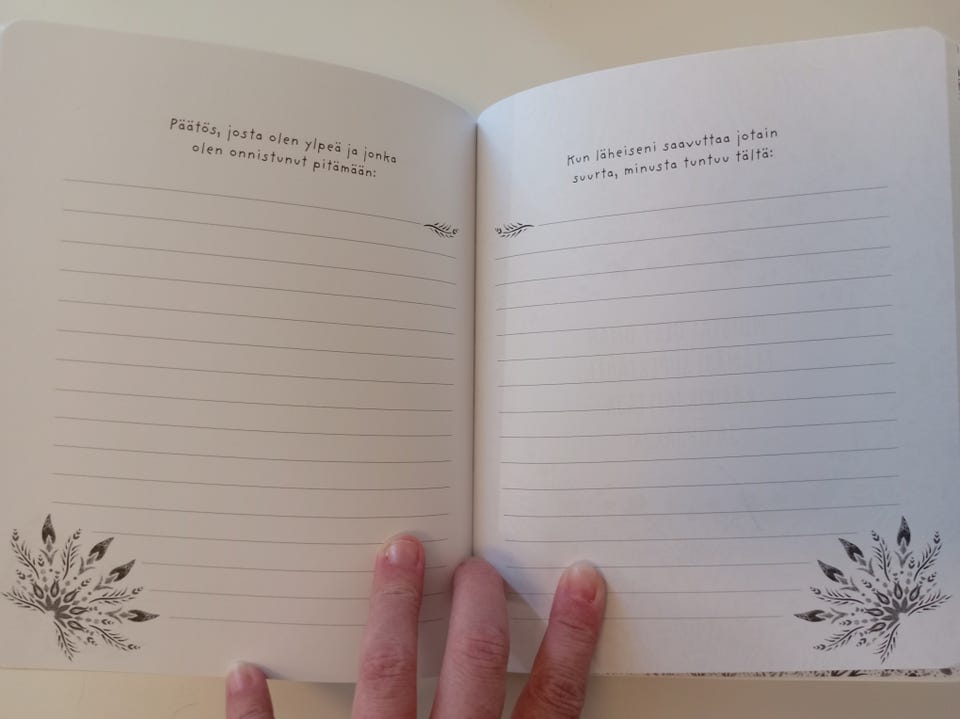 Päätös, josta olen ylpeä ja jonka
olen onnistunut pitämään:
Kun läheiseni saavuttaa jotain
suurta, minusta tuntuu tältä: